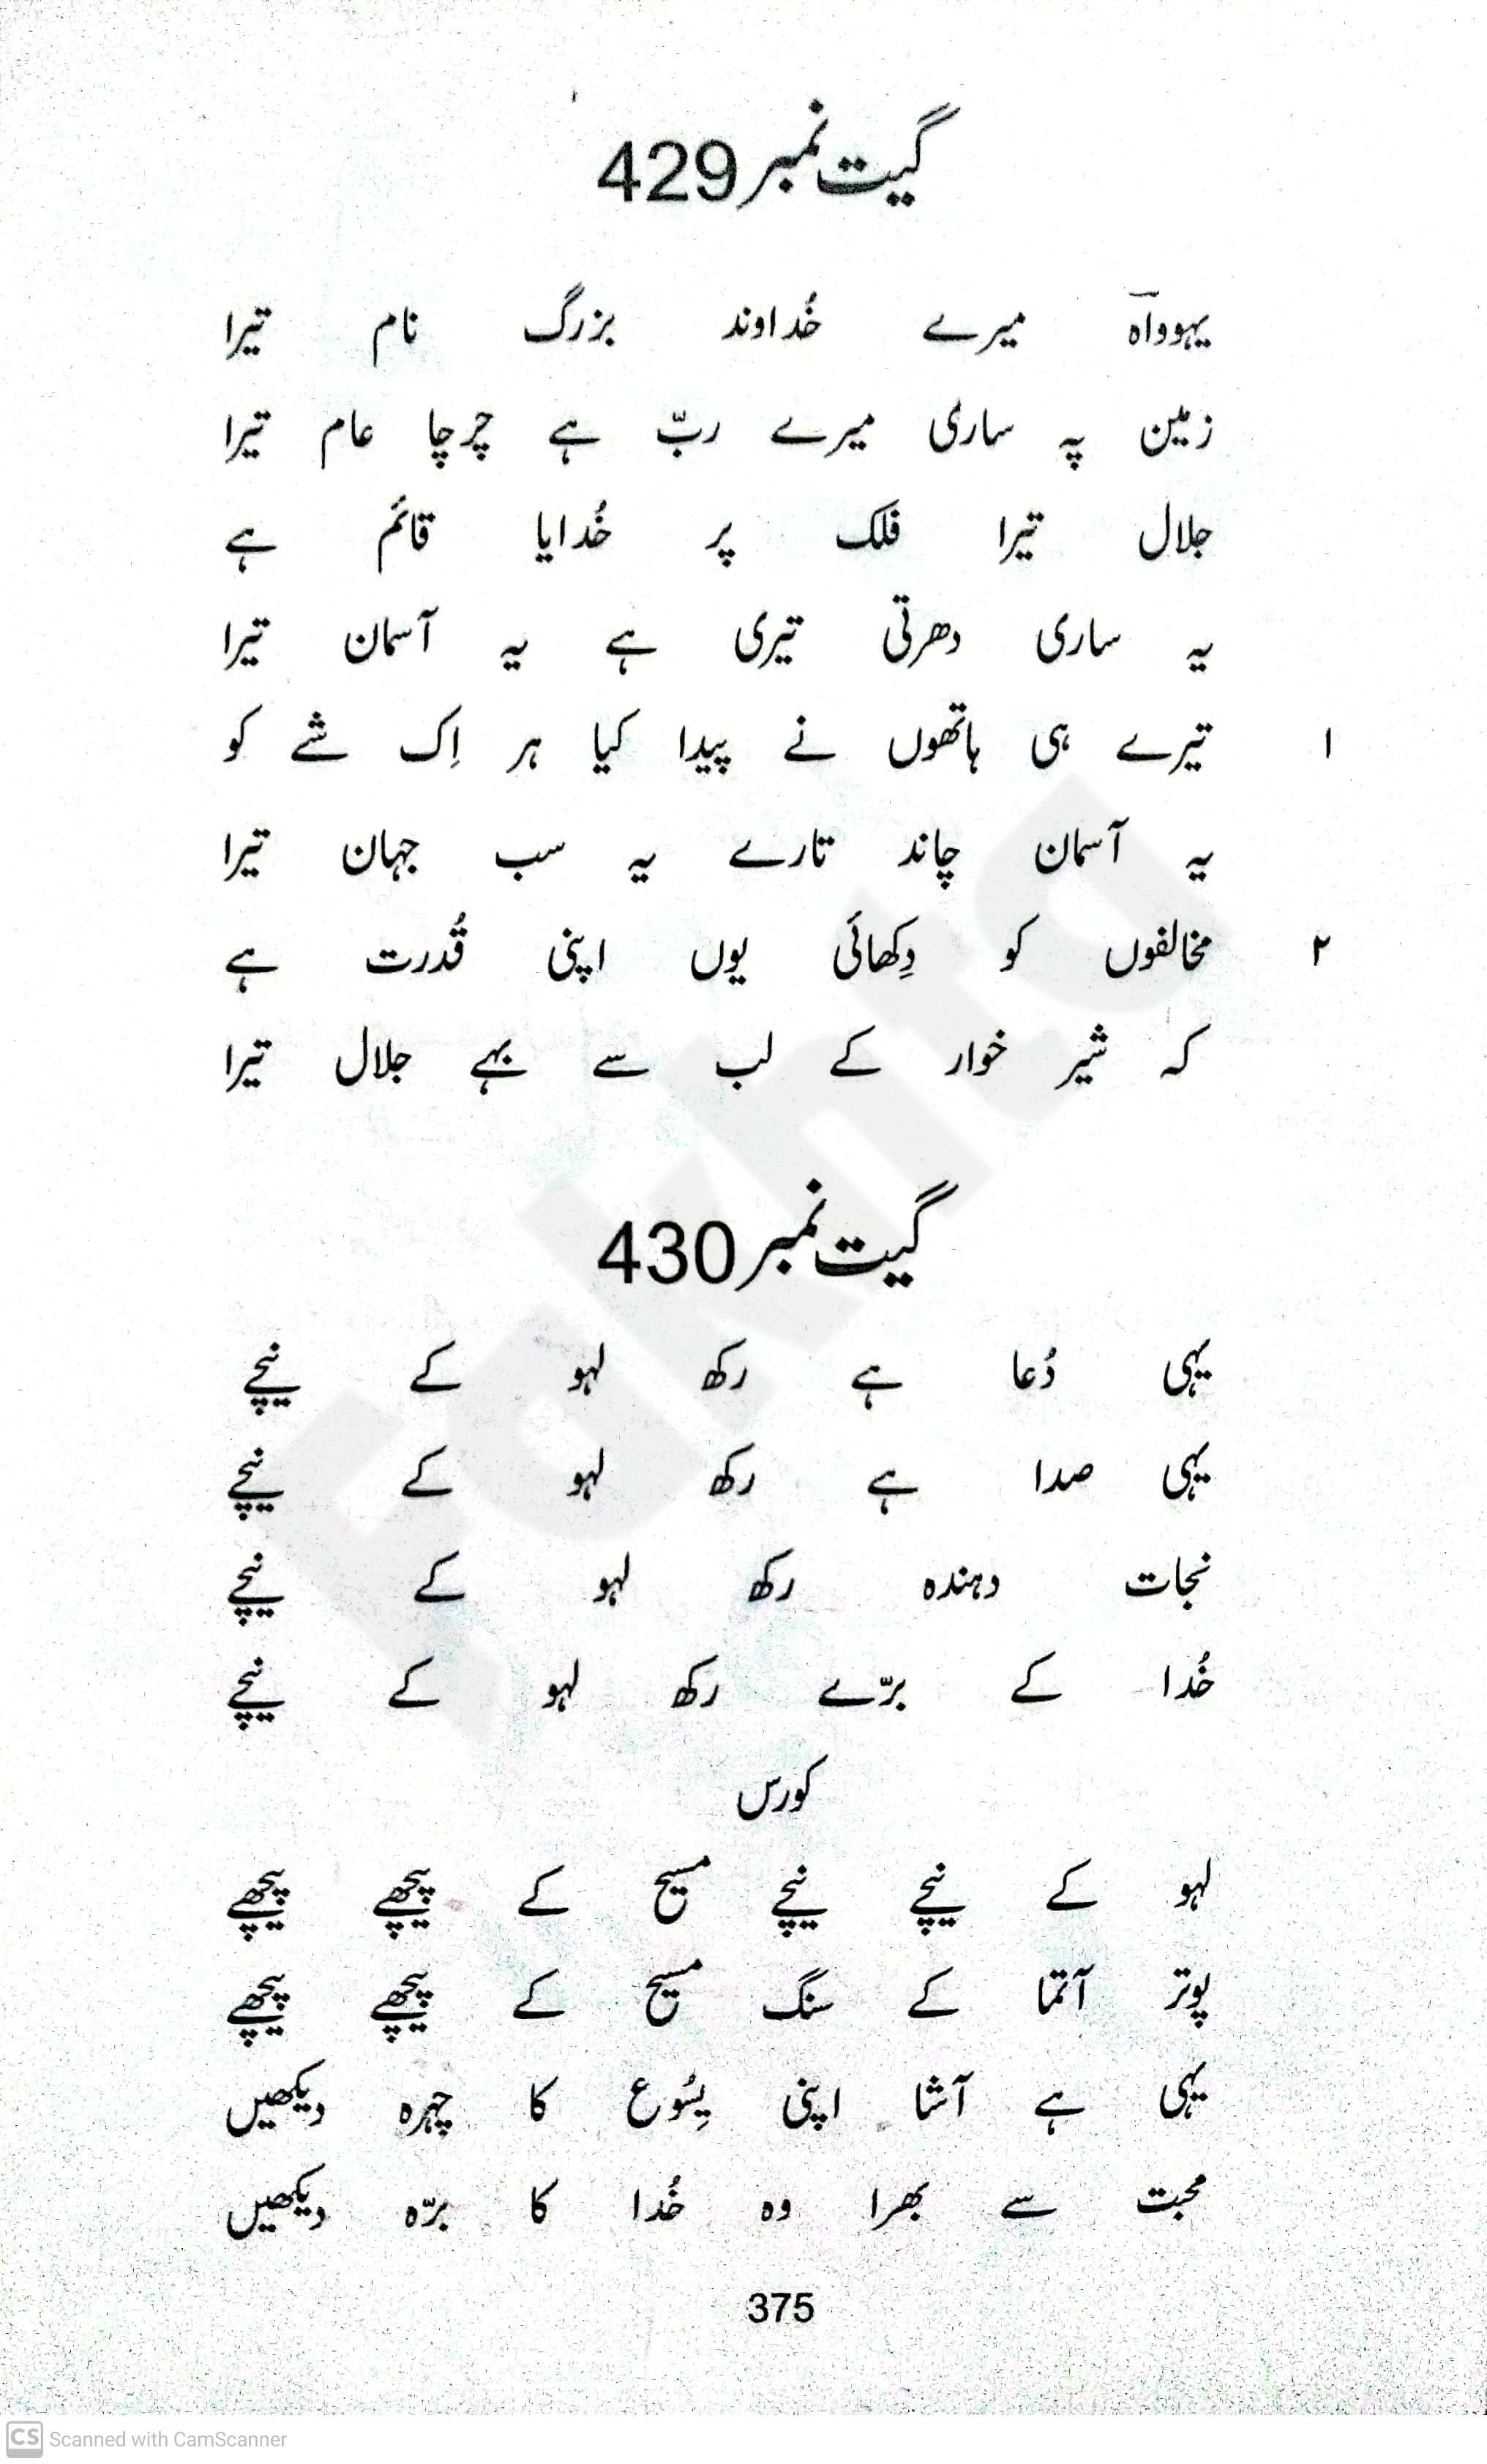 گیت نمبر 429
یہوواہ میرے خُداوند بزرگ نام تیرا
زمین پہ ساری میرے ربّ ہے چرچا عام تیرا
جلال تیرا فلک پر خُدایا قائم ہے
یہ ساری دھرتی تیری ہے یہ آسمان تیرا
۱ تیرے ہی ہاتھوں نے پیدا کیا ہر اِک شے کو
یہ آسمان چاند تارے یہ سب جہان تیرا
۲ مخالفوں کو دِکھائی یوں اپنی قُدرت ہے
کہ شیر خوار کے لب سے بہے جلال تیرا
گیت نمبر 430
یہی دُعا ہے رکھ لہو کے نیچے
یہی صدا ہے رکھ لہو کے نیچے
نجات دہندہ رکھ لہو کے نیچے
خُدا کے برّے رکھ لہو کے نیچے
کورس
لہو کے نیچے نیچے مسیح کے پیچھے پیچھے
پوتر آتما کے سنگ مسیح کے پیچھے پیچھے
یہی ہے آشا اپنی یِسُوع کا چہرہ دیکھیں
محبت سے بھرا وہ خُدا کا برّہ دیکھیں
375
CS Scanned with CamScanner